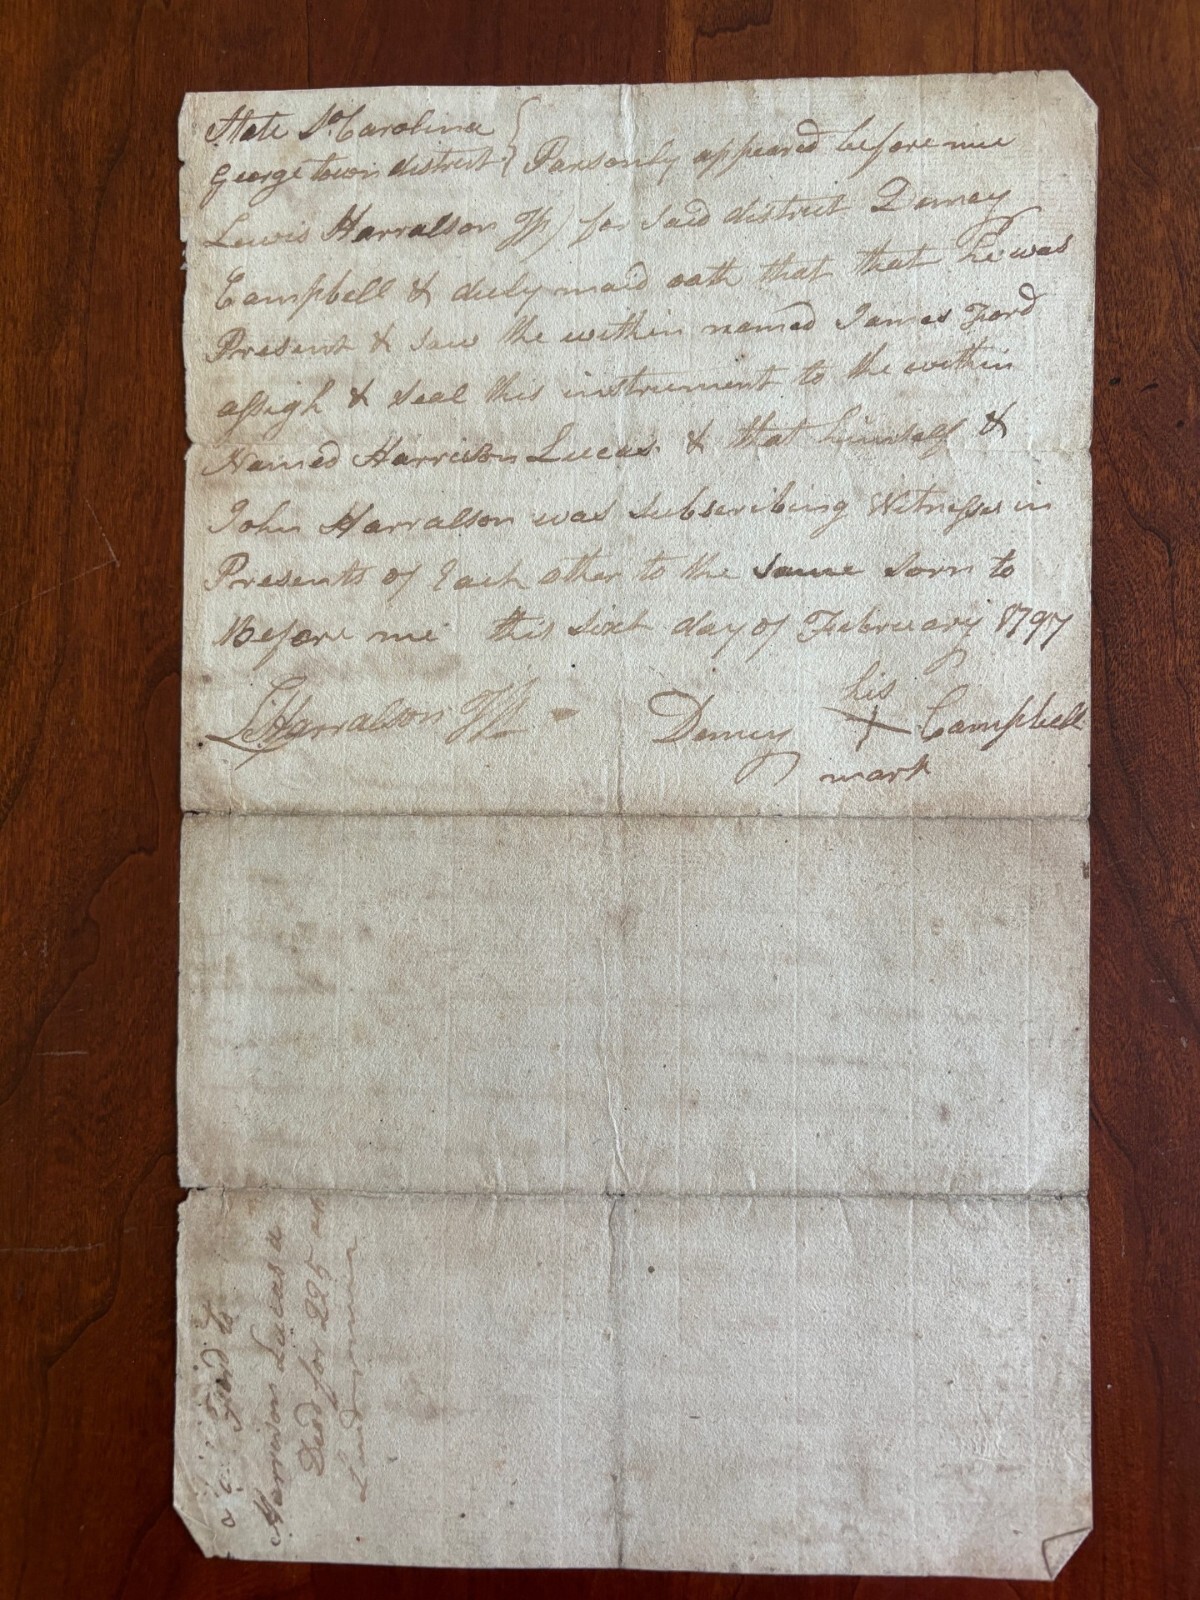 State So Carolina
George town district } Parsonly appeared before me
Lewis Harralson JP for said district Demcy
Campbell & duly maid oath that that he was
Present & saw the within named James Ford
assigh & seal this instrument to the within
Named Harrison Lucas & that himself &
John Harralson was subscribing Witnesses in
Presents of Each other to the same sorn to
Before me this sixt day of February 1797
L Harralson JP Demcy his X mark Campbell
Ford to
Harrison Lucas a
Deed for 225 ac
Land